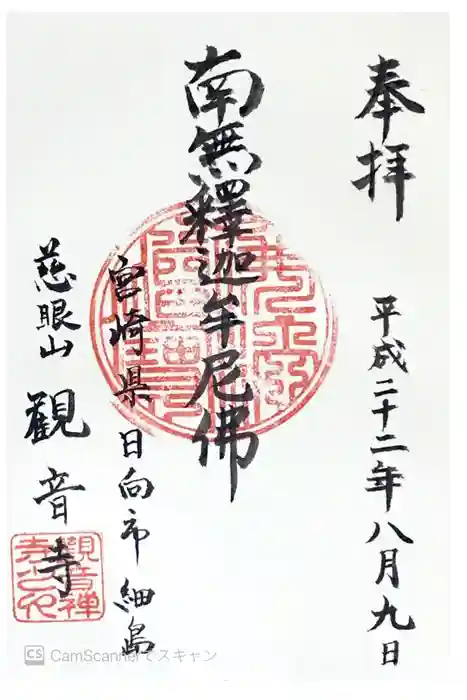 奉拝
平成二十二年八月九日
南無釋迦牟尼佛
宮崎県日向市細島
慈眼山観音寺
CS CamScannerでスキャン